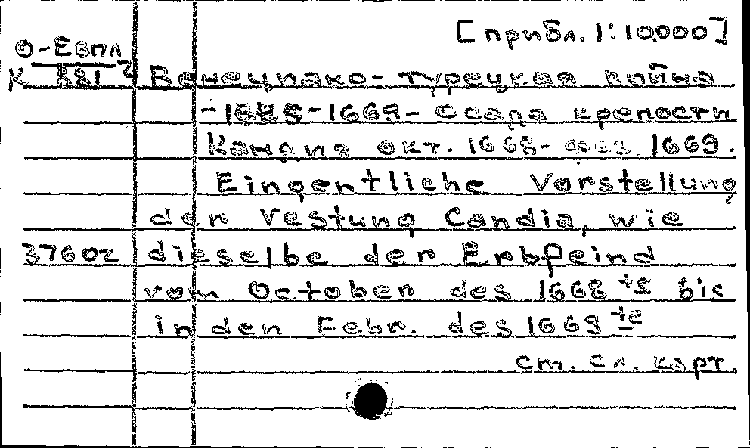 [прибл. 1:10000]
О-Евпл
К 881²
Венецианско-турецкая война
-1668-1669- Осада крепости
Кандиа окт. 1668- фев. 1669.
Eingentliche Vorstellung
der Vestung Candia, wie
37602 dieselbe der Erbfeind
vom October des 1668 ts bis
in den Febr. des 1669 te
см. сл. карт.